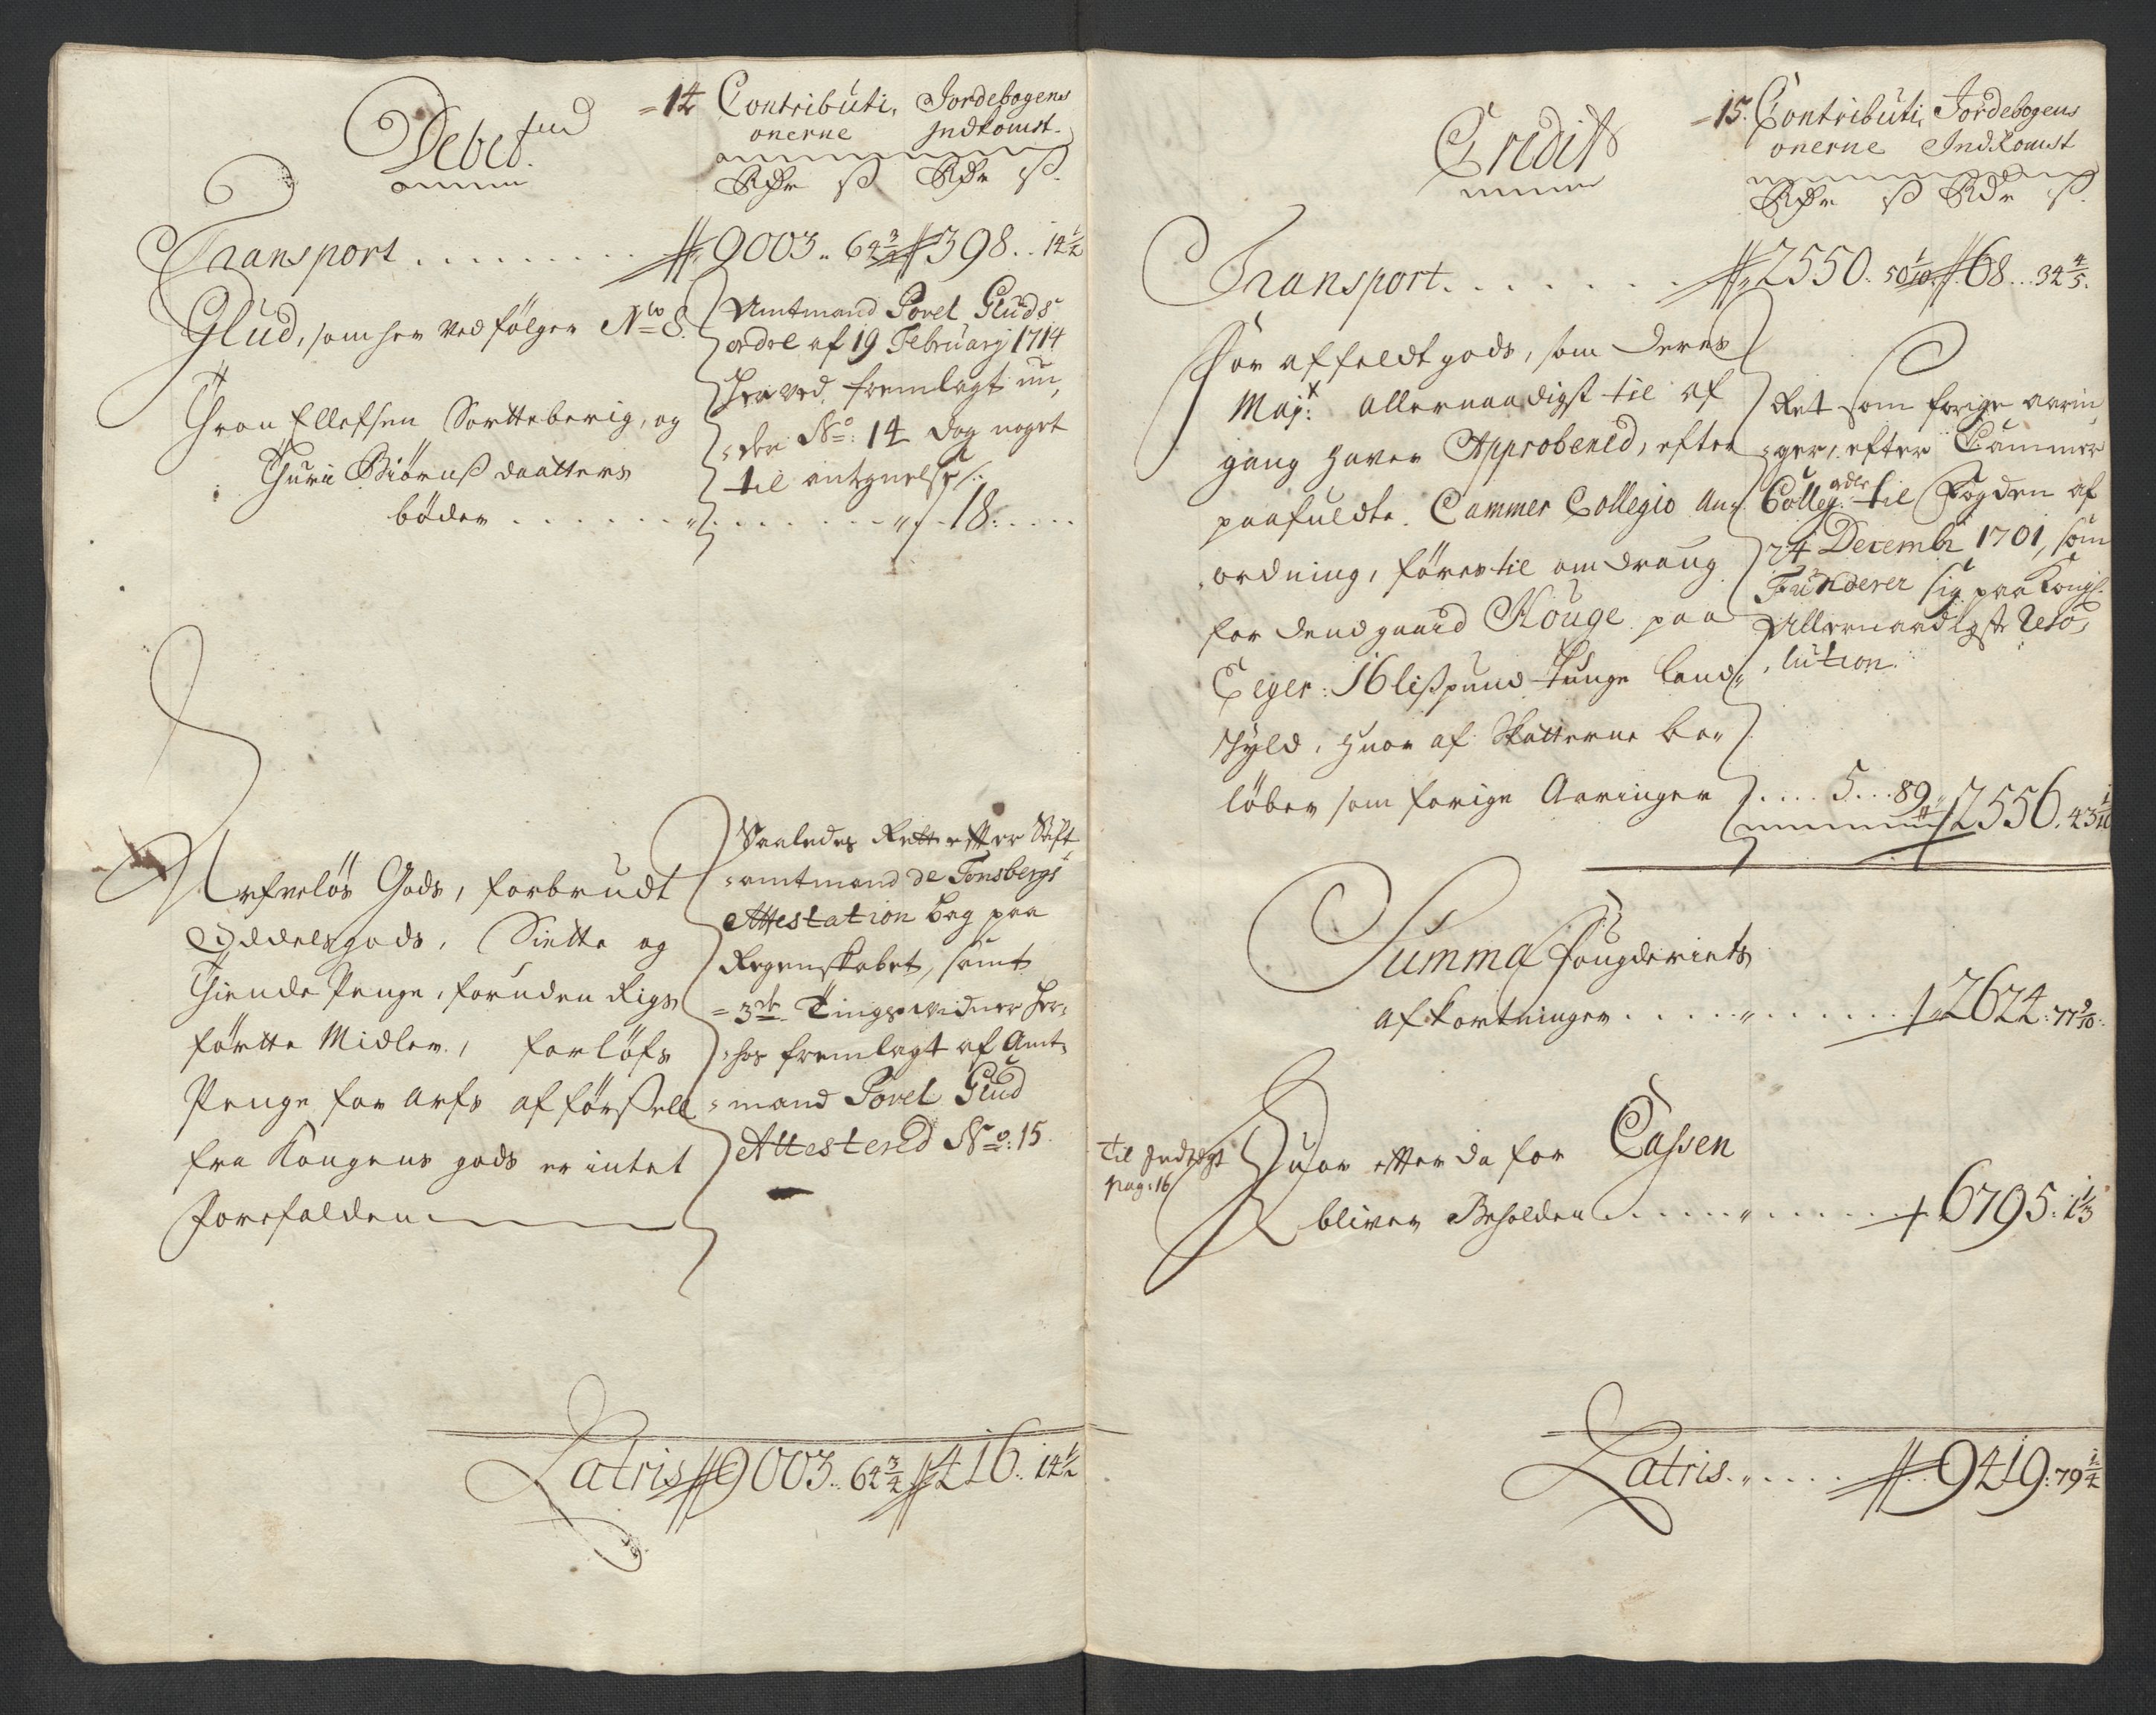 Debet
=14 Contributi, Jordebogens
onerne Indkomst.
Rdr ß Rdr ß.
Transport . . . . . . . . . 9003.. 64 3/4 398.. 14 1/2
Glud, som her ved følger No 8.
Thron Ellefsen Sortteberig, og
Thuri Biörnß daatters
böder . . . . . . . . . . . . . . 18: . . . .
Amtmand Povel Gluds
ordre af 19 Februarj 1714
Herved fremlagt un,
:der No: 14 dog noget
til antegnelse/:
Arfveløs Gods, forbrudt
Oddelsgods, Siette og
Thiende Penge, foruden Rigs
förtte Midler, forløfs
Penge for Arfs afförßell
fra Kongens gods er intet
forefalden
Saaledes Rett efter Stift
:amtmand de Tonsbergs
Attestation bag paa
Regenskabet, samt
=3de Tingsvidner her,
:hos fremlagt af Amt,
:mand Povel Glud
Attesterid No: 15.
Latris 9003.. 64 3/4 416.. 14 1/2
Credit
=15. Contributi, Jordebogens
onerne Indkomst
Rdr ß Rdr ß.
Transport. . . . . . . 2550. 50 1/10 68... 34 4/5.
For affeldt gods, som Deres
Mayt: Allernaadigst til af
gang haver Approberid, efter
paafuldte Cammer Collegio An,
:ordning, føres til omdraug
for dend gaard Houge paa
Eeger: 16 lißpund tunge land,
skyld, huor af Skatterne be,,
løber som forige Aaringer . . . . 5... 89 2556. 43 1/10
Ret som forige aarin
:ger, efter Cammer
Colleg: ordre til Fogden af
24 Decembr 1701, som
Funderer sig paa Kongl:
Allernaadigste Reso,
:lution.
Summa Fougderiets
afkortninger . . . . . . . . . . . 2624: 77 9/10:
Til Indtegt
pag: 16
Huor efter da for Cassen
bliver Beholden . . . . . . . . . . 6795: 1 1/3
Latris. . . . . . 9419: 79 1/4